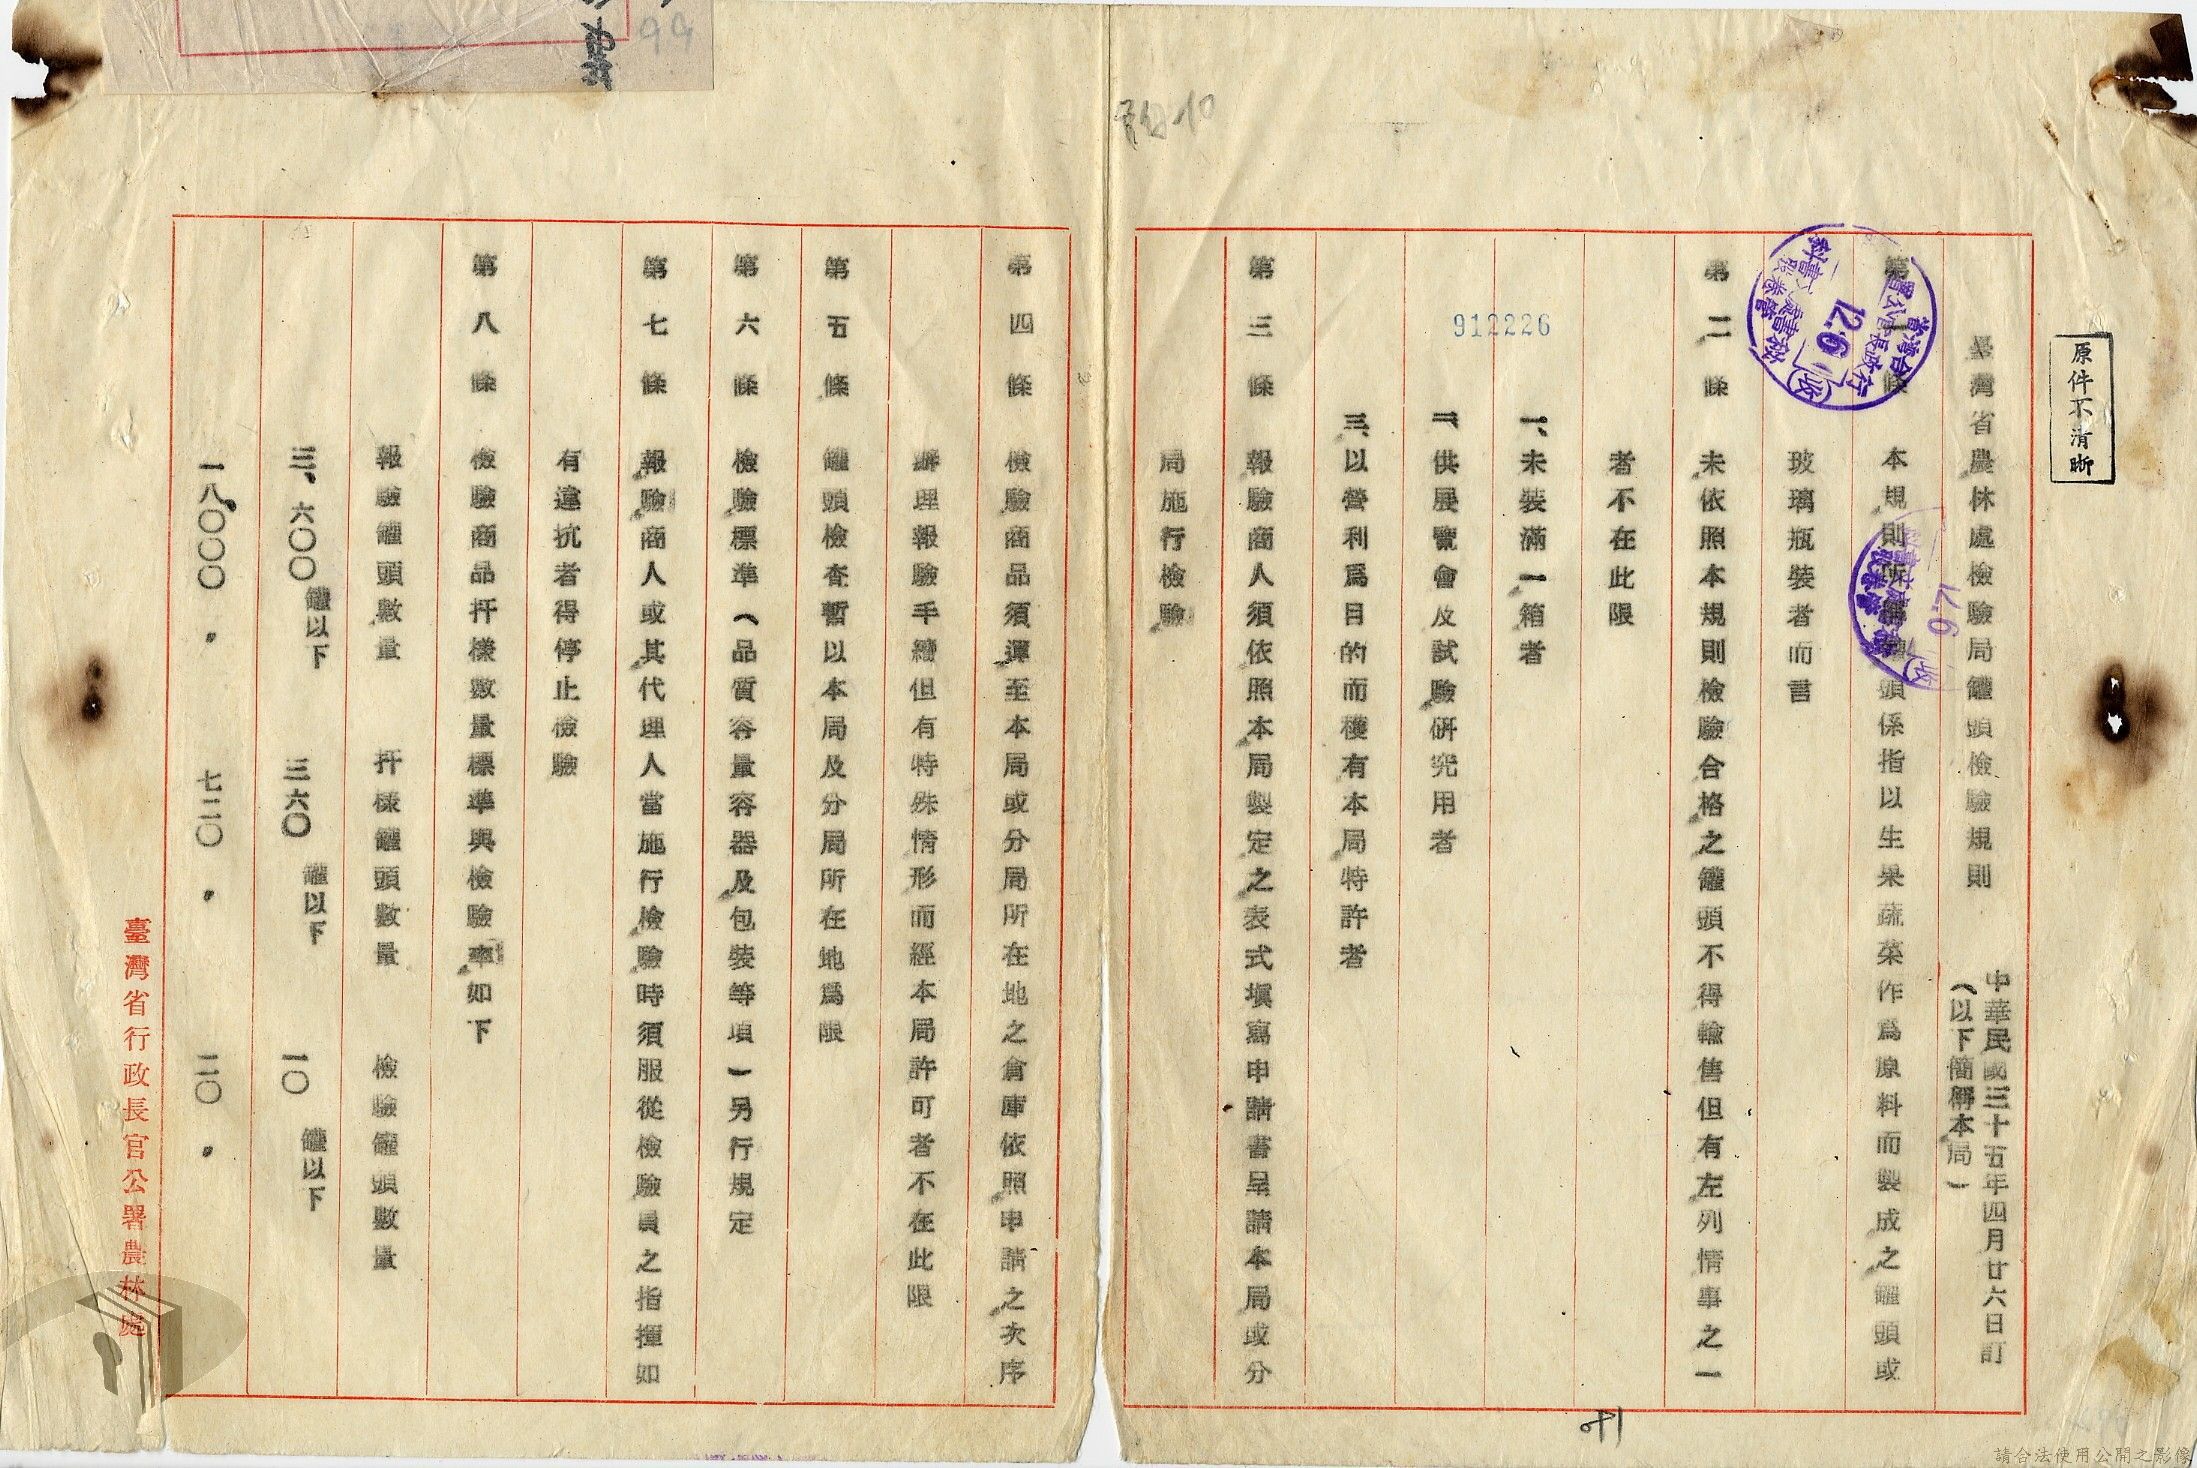 原件不清晰
臺灣省農林處檢驗局罐頭檢驗規則
中華民國三十五年四月廿六日訂
（以下簡稱本局）
第一條 本規則所稱罐頭係指以生果蔬菜作爲原料而製成之罐頭或
玻璃瓶裝者而言
第二條 未依照本規則檢驗合格之罐頭不得輸售但有左列情事之一
者不在此限
912226
一、未裝滿一箱者
二、供展覽會及試驗研究用者
三、以營利爲目的而穫有本局特許者
第三條 報驗商人須依照本局製定之表式塡寫申請書呈請本局或分
局施行檢驗
第四條 檢驗商品須運至本局或分局所在地之倉庫依照申請之次序
辦理報驗手續但有特殊情形而經本局許可者不在此限
第五條 罐頭檢查暫以本局及分局所在地爲限
第六條 檢驗標準（品質容量容器及包裝等項）另行規定
第七條 報驗商人或其代理人當施行檢驗時須服從檢驗員之指揮如
有違抗者得停止檢驗
第八條 檢驗商品扦樣數量標準與檢驗率如下
報驗罐頭數量 扦樣罐頭數量 檢驗罐頭數量
三、六〇〇罐以下 三六〇罐以下 一〇罐以下
一八、〇〇〇〃 七二〇〃 二〇〃
臺灣省行政長官公署農林處
12.6
12.6
99
請合法使用公開之影像